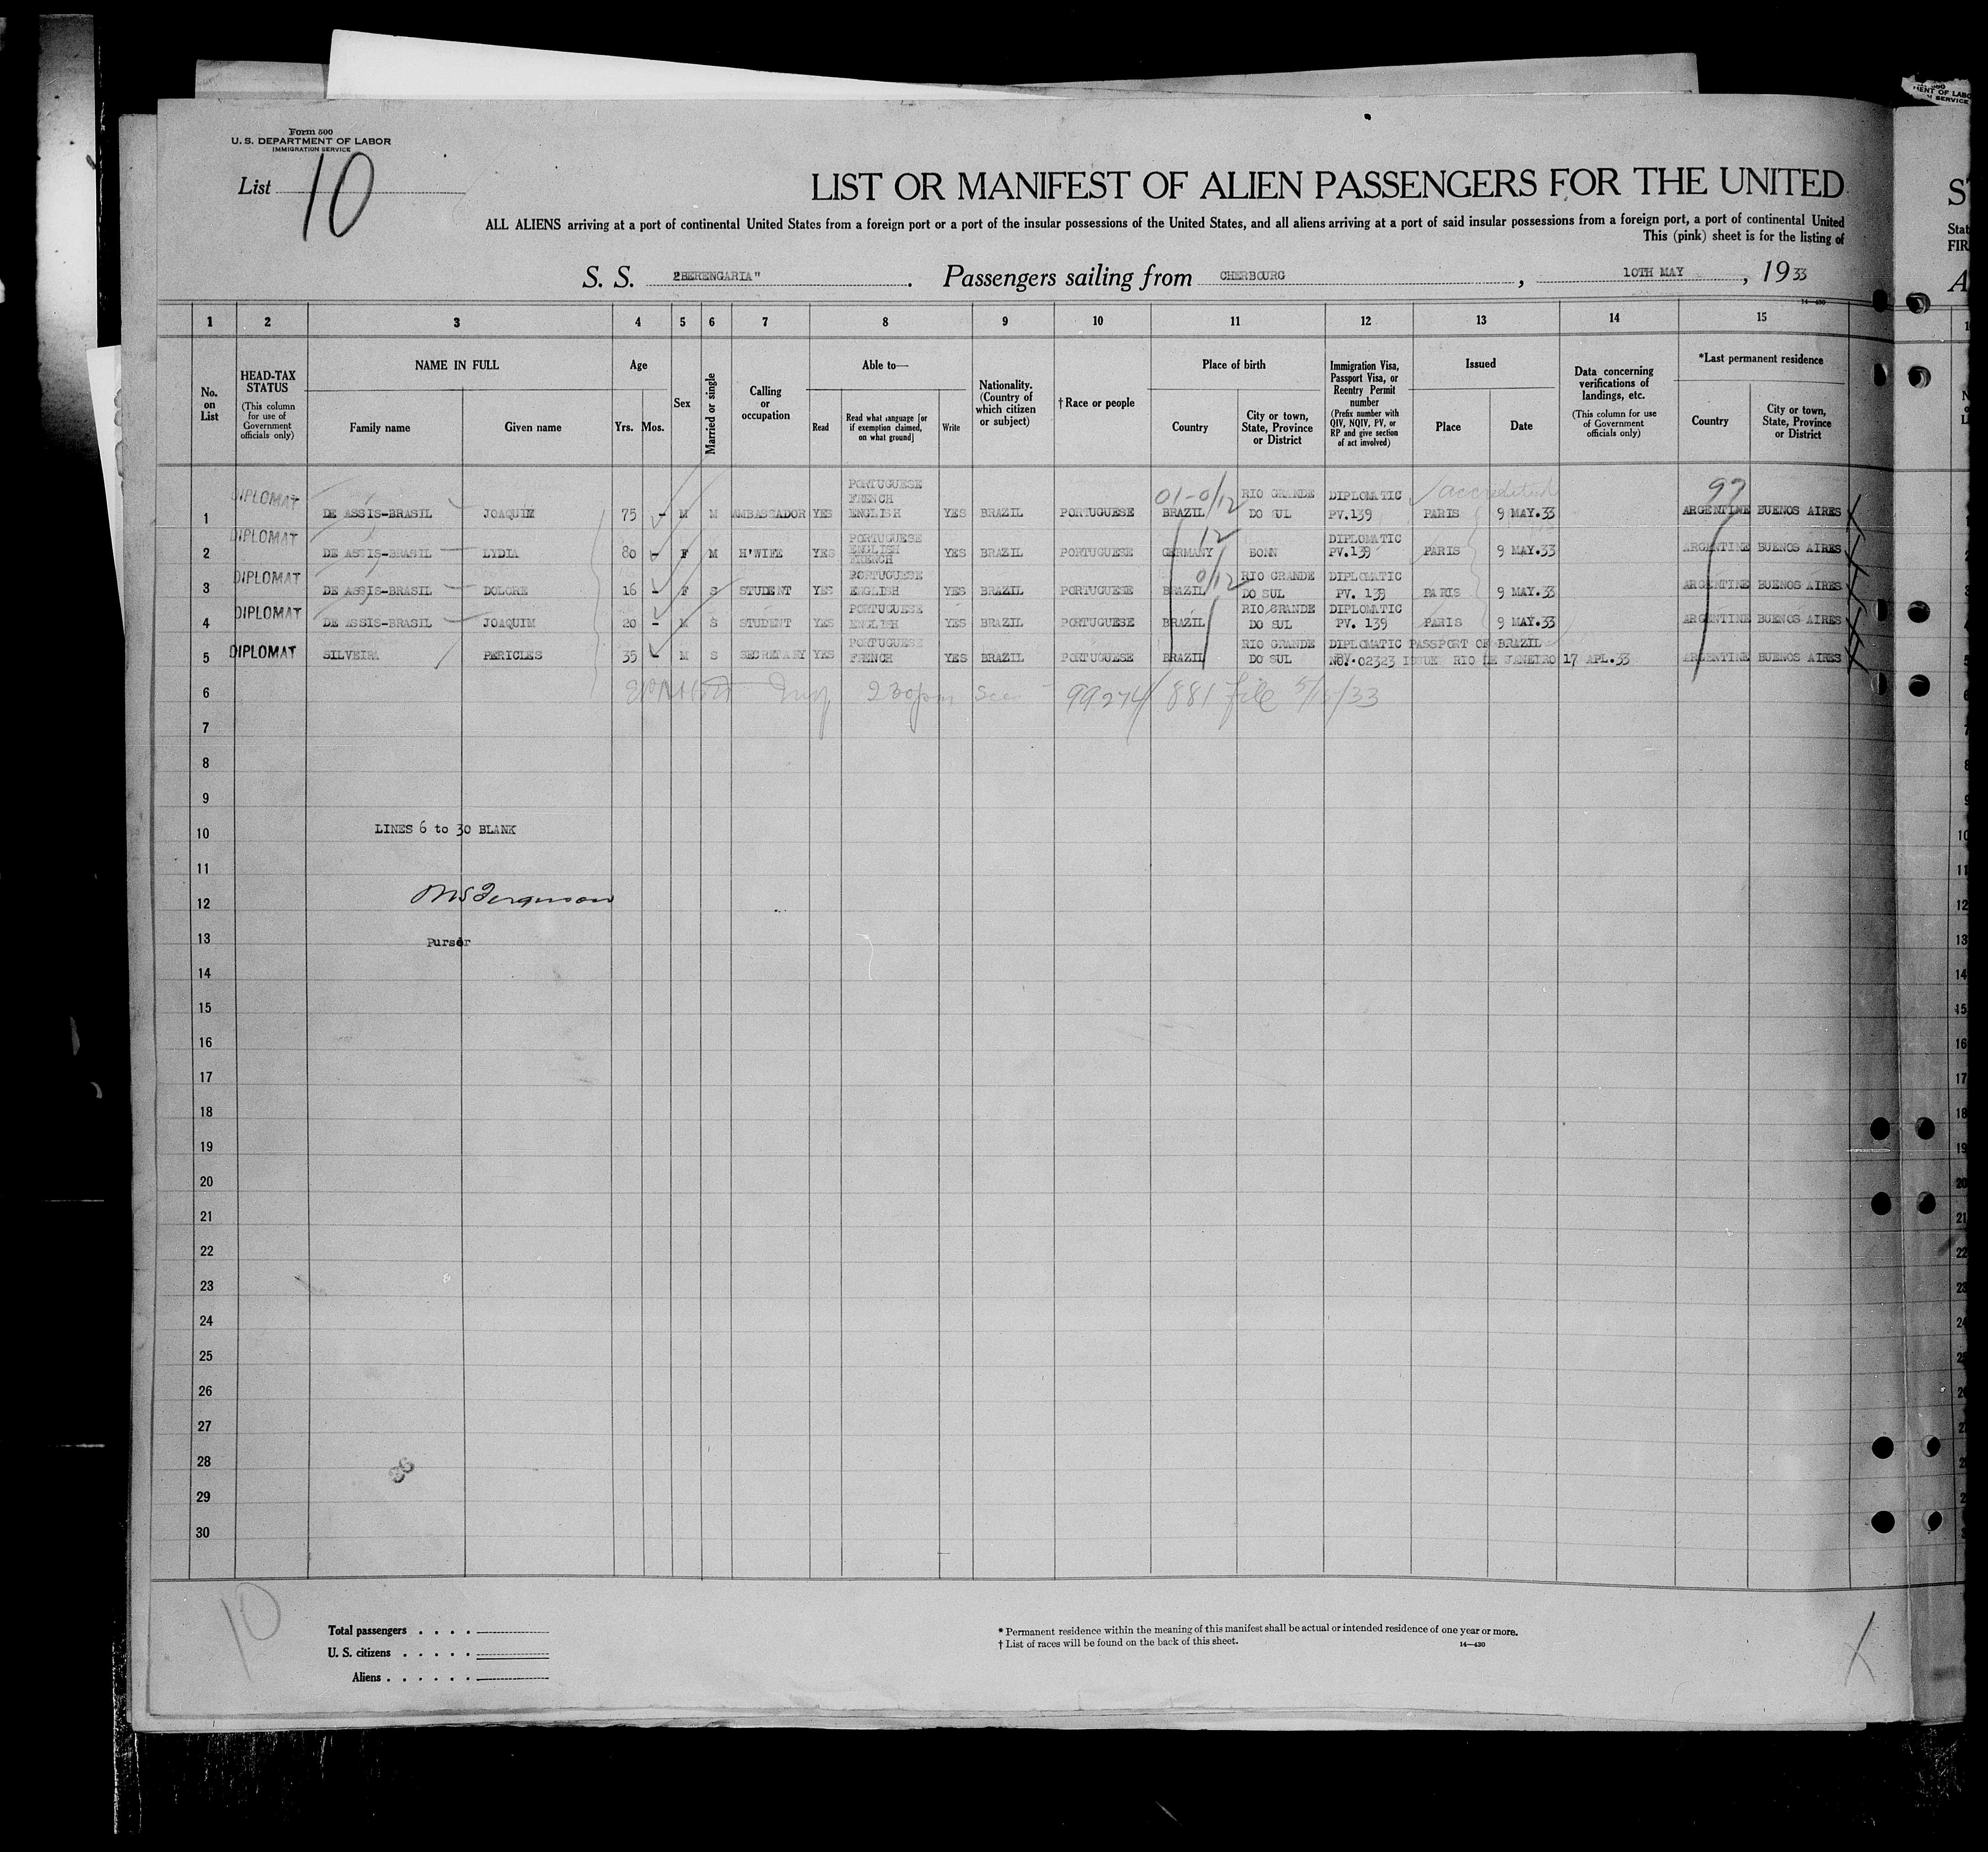 Form 500
U. S. DEPARTMENT OF LABOR
IMMIGRATION SERVICE
List 10
LIST OR MANIFEST OF ALIEN PASSENGERS FOR THE UNITED
ALL ALIENS arriving at a port of continental United States from a foreign port or a port of the insular possessions of the United States, and all aliens arriving at a port of said insular possessions from a foreign port, a port of continental United
This (pink) sheet is for the listing of
S. S. "BERENGARIA". Passengers sailing from CHERBOURG, 10TH MAY, 1933
14—430
1 2 3 4 5 6 7 8 9 10 11 12 13 14 15
No. on List
HEAD-TAX STATUS
(This column for use of Government officials only)
NAME IN FULL
Family name Given name
Age
Yrs. Mos.
Sex
Married or single
Calling or occupation
Able to—
Read
Read what language [or if exemption claimed, on what ground]
Write
Nationality. (Country of which citizen or subject)
† Race or people
Place of birth
Country
City or town, State, Province or District
Immigration Visa, Passport Visa, or Reentry Permit number
(Prefix number with QIV, NQIV, PV, or RP and give section of act involved)
Issued
Place Date
Data concerning verifications of landings, etc.
(This column for use of Government officials only)
*Last permanent residence
Country
City or town, State, Province or District
PORTUGUESE
DIPLOMAT FRENCH 01-0/12 RIO GRANDE DIPLOMATIC accredited 97
1 DE ASSIS-BRASIL JOAQUIM 75 - M M AMBASSADOR YES ENGLISH YES BRAZIL PORTUGUESE BRAZIL DO SUL PV.139 PARIS 9 MAY.33 ARGENTINE BUENOS AIRES
DIPLOMAT PORTUGUESE 12 DIPLOMATIC
2 DE ASSIS-BRASIL LYDIA 80 - F M H'WIFE YES ENGLISH FRENCH YES BRAZIL PORTUGUESE GERMANY BONN PV.139 PARIS 9 MAY.33 ARGENTINE BUENOS AIRES
DIPLOMAT PORTUGUESE 0/12 RIO GRANDE DIPLOMATIC
3 DE ASSIS-BRASIL DOLORE 16 - F S STUDENT YES ENGLISH YES BRAZIL PORTUGUESE BRAZIL DO SUL PV. 139 PARIS 9 MAY.33 ARGENTINE BUENOS AIRES
DIPLOMAT PORTUGUESE RIO GRANDE DIPLOMATIC
4 DE ASSIS-BRASIL JOAQUIM 20 - M S STUDENT YES ENGLISH YES BRAZIL PORTUGUESE BRAZIL DO SUL PV. 139 PARIS 9 MAY.33 ARGENTINE BUENOS AIRES
DIPLOMAT PORTUGUESE RIO GRANDE DIPLOMATIC PASSPORT OF BRAZIL
5 SILVEIRA PERICLES 35 - M S SECRETARY YES FRENCH YES BRAZIL PORTUGUESE BRAZIL DO SUL NO. 02323 ISSUED RIO DE JANEIRO 17 APL.33 ARGENTINE BUENOS AIRES
6 230pm 99274/881 file 33
7
8
9
10 LINES 6 to 30 BLANK
11
12 Ferguson
13 Purser
14
15
16
17
18
19
20
21
22
23
24
25
26
27
28
29
30
10
Total passengers . . . .
U. S. citizens . . . . .
Aliens . . . . . .
* Permanent residence within the meaning of this manifest shall be actual or intended residence of one year or more.
† List of races will be found on the back of this sheet.
14—430